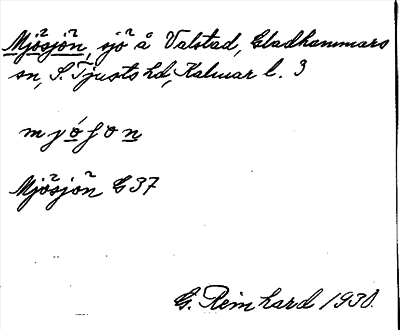 Mjösjön, sjö å Valstad, Gladhammars
sn, S. Tjusts hd, Kalmar l. 3
mjóſon
Mjösjön G 37
G. Reinhard 1930.